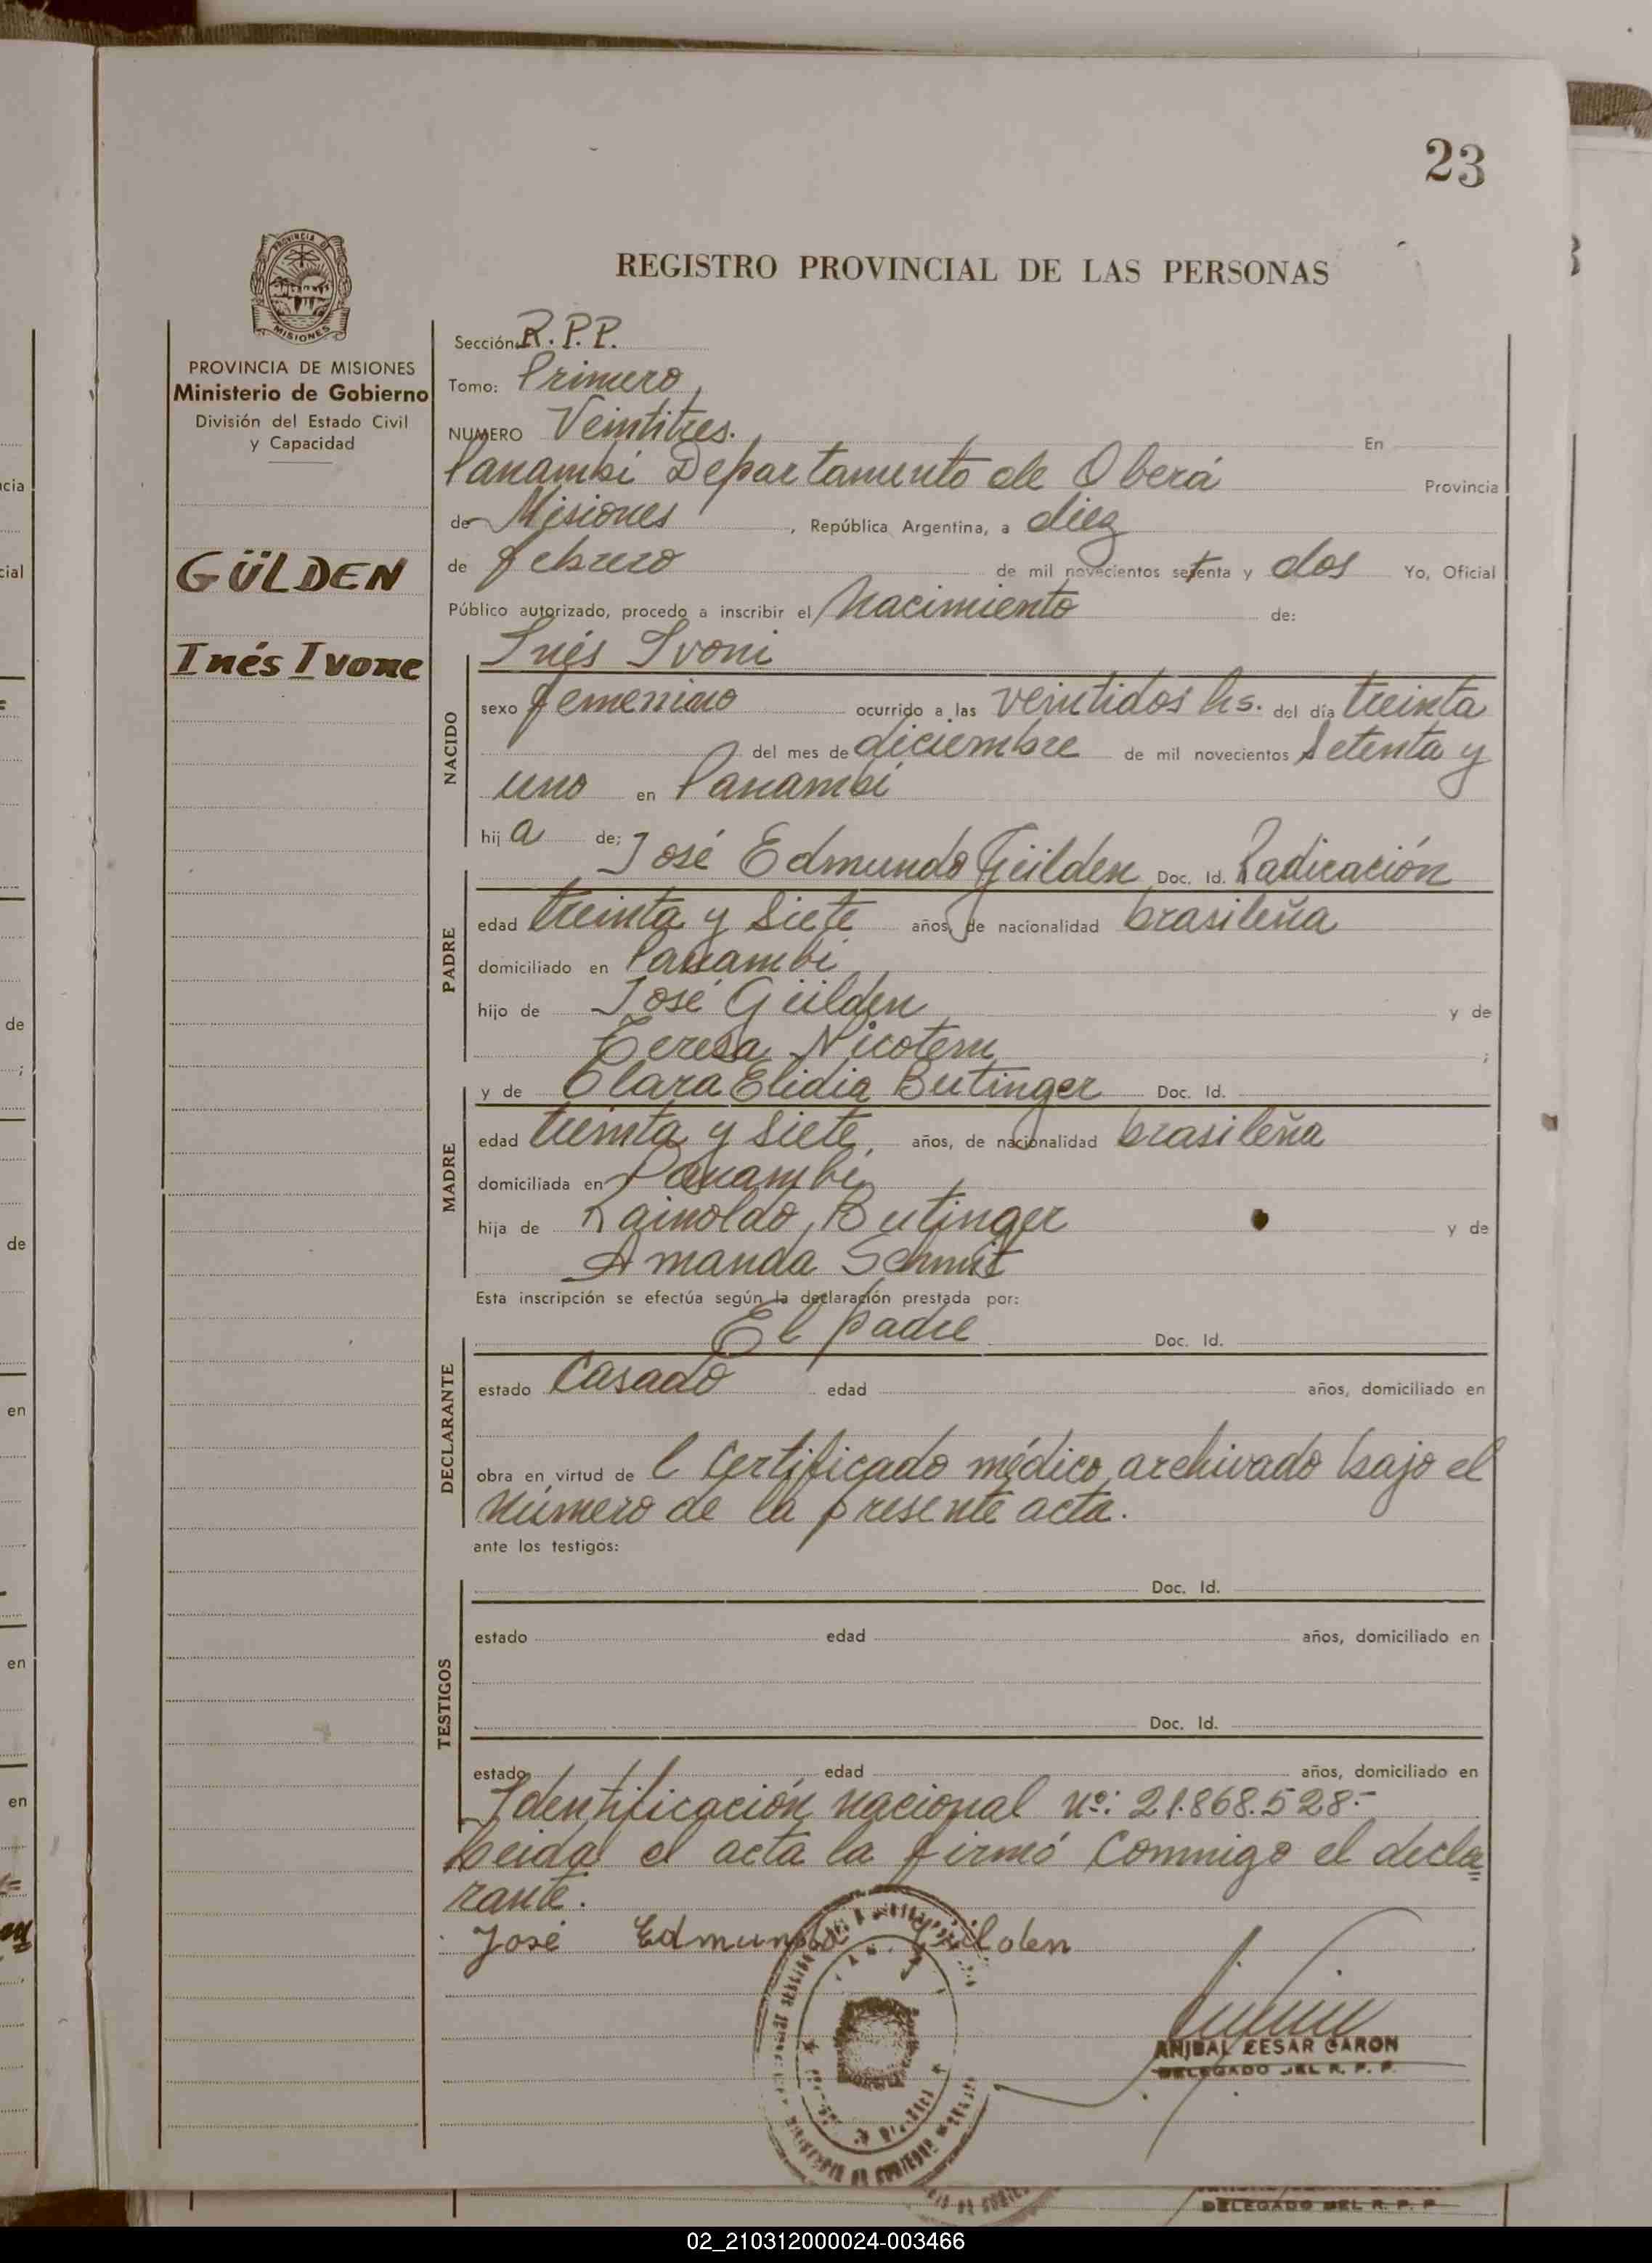 23
REGISTRO PROVINCIAL DE LAS PERSONAS
PROVINCIA DE
MISIONES
PROVINCIA DE MISIONES
Ministerio de Gobierno
División del Estado Civil
y Capacidad
GÜLDEN
Inés Ivone
Sección R.P.P.
Tomo: Primero,
NUMERO Veintitres. En
Panambí Departamento de Oberá Provincia
de Misiones, República Argentina, a diez
de febrero de mil novecientos setenta y dos Yo, Oficial
Público autorizado, procedo a inscribir el Nacimiento de:
Inés Ivoni
NACIDO
sexo femenino ocurrido a las veintidos hs. del día treinta
del mes de diciembre de mil novecientos setenta y
uno en Panambí
hij a de; José Edmundo Gülden Doc. Id. Radicación
PADRE
edad treinta y siete años, de nacionalidad brasileña
domiciliado en Panambí
hijo de José Gülden y de
Teresa Nicotem ;
y de Clara Elidia Butinger Doc. Id.
MADRE
edad treinta y siete, años, de nacionalidad brasileña
domiciliada en Panambí
hija de Rainoldo Butinger y de
Amanda Schmit
Esta inscripción se efectúa según la declaración prestada por:
El padre Doc. Id.
DECLARANTE
estado Casado edad años, domiciliado en
obra en virtud de l Certificado médico archivado bajo el
número de la presente acta.
ante los testigos:
TESTIGOS
Doc. Id.
estado edad años, domiciliado en
Doc. Id.
estado edad años, domiciliado en
Identificación nacional nº: 21.868.528.-
Leida el acta la firmó conmigo el decla=
rante.
José Edmundo Gülden
ANIBAL CESAR GARON
DELEGADO DEL R. P. P.
DELEGADO DEL R. P. P
02_210312000024-003466